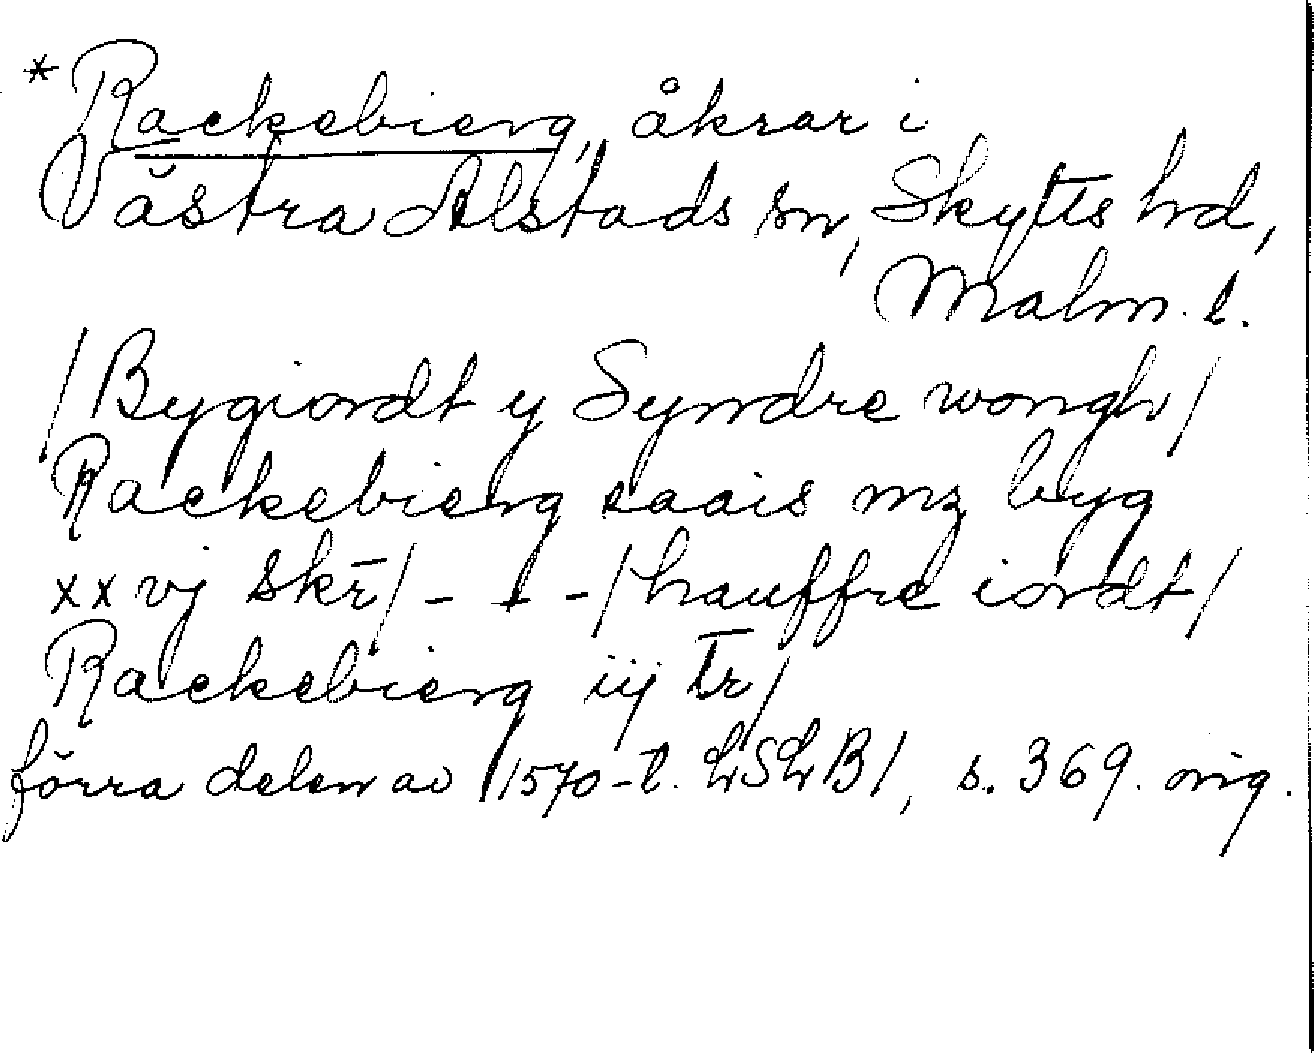 *Rackebierg, åkrar i
Västra Alstads sn, Skytts hd,
Malm. l.
/Bygiordt y Syndre wongh/
Rackebierg saais mz byg
xxvj skr̄/ - - -/hauffre iordt/
Rackebierg iij Tr̄/
förra delen av 1570-t. LSLB1, s. 369. orig.